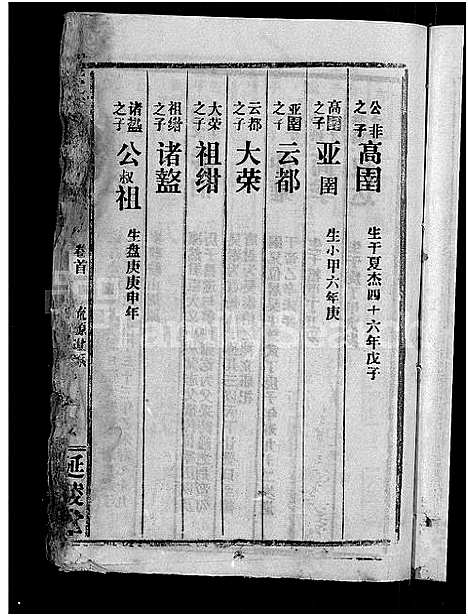 公非之子 高圉 生于夏杰四十六年戊子
高圉之子 亚圉 生小甲六年庚
亚圉之子 云都
云都之子 大荣
大荣之子 祖绀
祖绀之子 诸盩
诸盩之子 公叔祖 生盘庚庚申年
卷首
延陵堂
FamilySearch